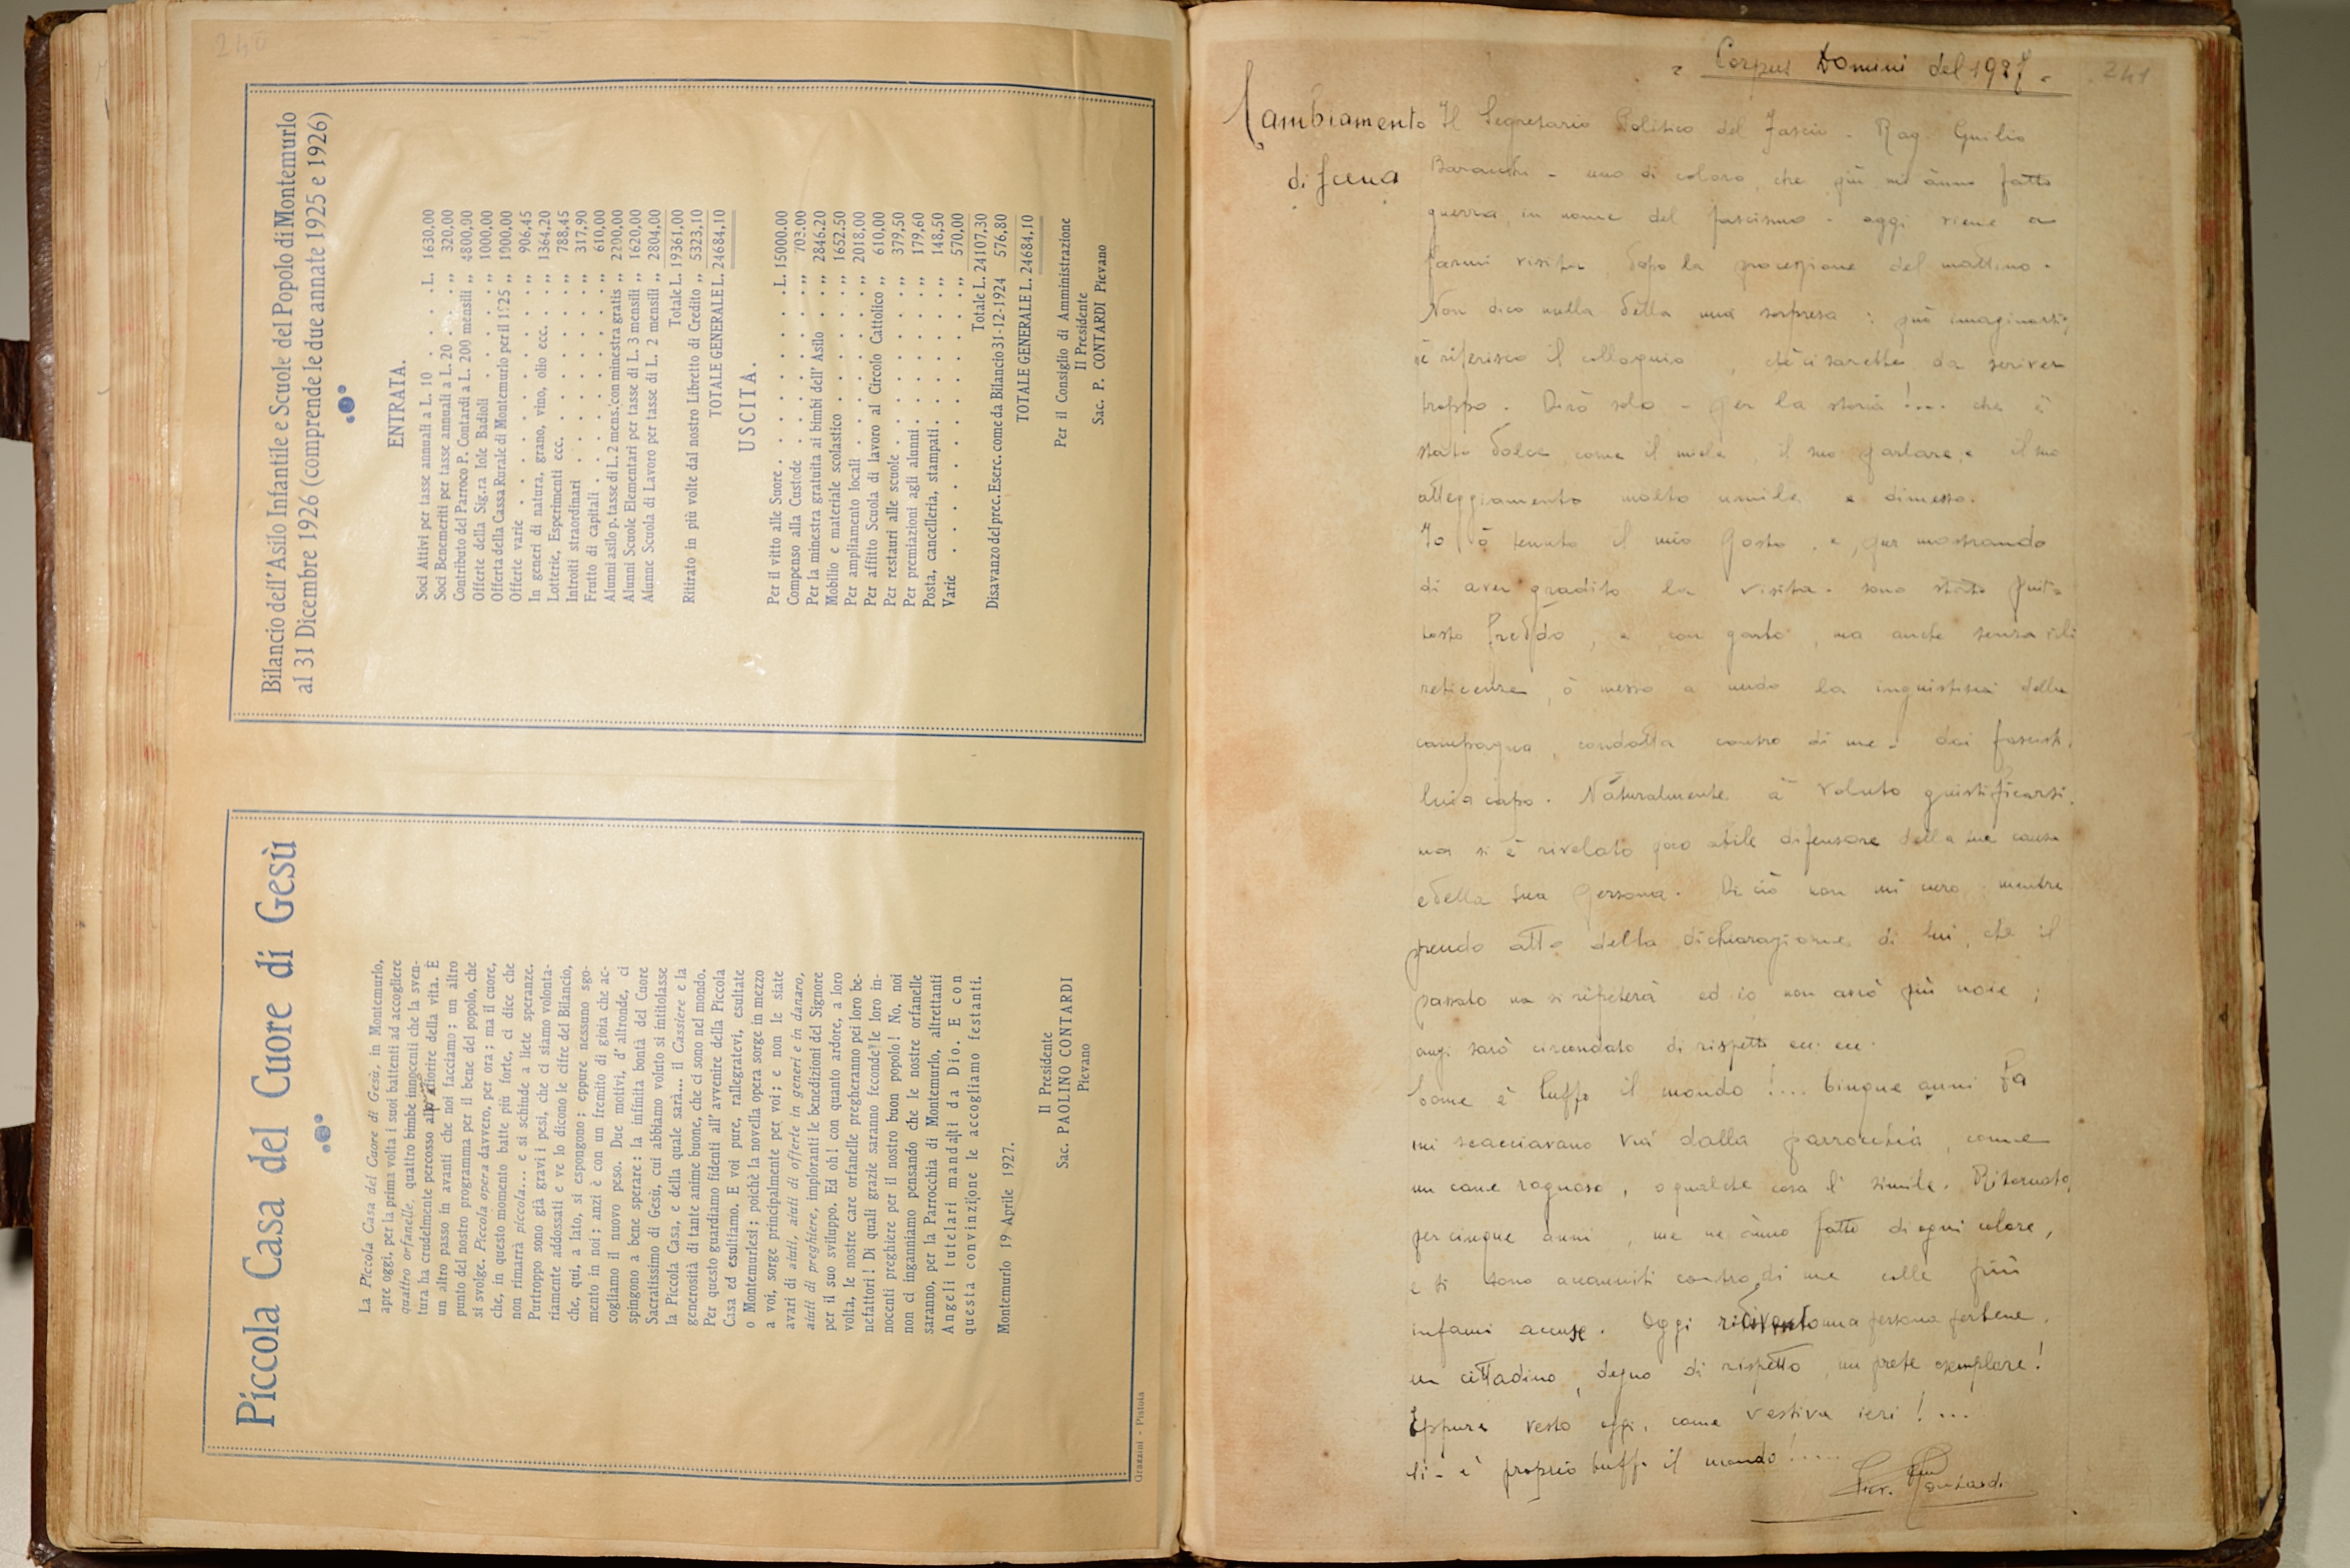 240
Bilancio dell'Asilo Infantile e Scuole del Popolo di Montemurlo
al 31 Dicembre 1926 (comprende le due annate 1925 e 1926)
ENTRATA.
Soci Attivi per tasse annuali a L. 10 . . . . L. 1630,00
Soci Benemeriti per tasse annuali a L. 20 . . . „ 320,00
Contributo del Parroco P. Contardi a L. 200 mensili „ 4800,00
Offerte della Sig.ra Iole Badioli . . . . . „ 1000,00
Offerta della Cassa Rurale di Montemurlo per il 1925 „ 1000,00
Offerte varie . . . . . . . . „ 906,45
In generi di natura, grano, vino, olio ecc. . . „ 1364,20
Lotterie, Esperimenti ecc. . . . . . . „ 788,45
Introiti straordinari . . . . . . . „ 317,90
Frutto di capitali . . . . . . . . „ 610,00
Alunni asilo p. tasse di L. 2 mens. con minestra gratis „ 2200,00
Alunni Scuole Elementari per tasse di L. 3 mensili „ 1620,00
Alunne Scuola di Lavoro per tasse di L. 2 mensili „ 2804,00
Totale L. 19361,00
Ritirato in più volte dal nostro Libretto di Credito „ 5323,10
TOTALE GENERALE L. 24684,10
USCITA.
Per il vitto alle Suore . . . . . . . L. 15000.00
Compenso alla Custode . . . . . . . „ 703.00
Per la minestra gratuita ai bimbi dell' Asilo . . „ 2846.20
Mobilio e materiale scolastico . . . . . „ 1652.50
Per ampliamento locali . . . . . . . „ 2018,00
Per affitto Scuola di lavoro al Circolo Cattolico „ 610,00
Per restauri alle scuole . . . . . . „ 379,50
Per premiazioni agli alunni . . . . . . „ 179,60
Posta, cancelleria, stampati . . . . . . „ 148,50
Varie . . . . . . . . . . „ 570,00
Totale L. 24107,30
Disavanzo del prec. Eserc. come da Bilancio 31-12-1924 576,80
TOTALE GENERALE L. 24684,10
Per il Consiglio di Amministrazione
Il Presidente
Sac. P. CONTARDI Pievano
Piccola Casa del Cuore di Gesù
La Piccola Casa del Cuore di Gesù, in Montemurlo,
apre oggi, per la prima volta i suoi battenti ad accogliere
quattro orfanelle, quattro bimbe innocenti che la sven-
tura ha crudelmente percosso allo sfiorire della vita. È
un altro passo in avanti che noi facciamo; un altro
punto del nostro programma per il bene del popolo, che
si svolge. Piccola opera davvero, per ora; ma il cuore,
che, in questo momento batte più forte, ci dice che
non rimarrà piccola... e si schiude a liete speranze.
Purtroppo sono già gravi i pesi, che ci siamo volonta-
riamente addossati e ve lo dicono le cifre del Bilancio,
che, qui, a lato, si espongono; eppure nessuno sgo-
mento in noi; anzi è con un fremito di gioia che ac-
cogliamo il nuovo peso. Due motivi, d'altronde, ci
spingono a bene sperare: la infinita bontà del Cuore
Sacratissimo di Gesù, cui abbiamo voluto si intitolasse
la Piccola Casa, e della quale sarà... il Cassiere e la
generosità di tante anime buone, che ci sono nel mondo.
Per questo guardiamo fidenti all' avvenire della Piccola
Casa ed esultiamo. E voi pure, rallegratevi, esultate
o Montemurlesi; poichè la novella opera sorge in mezzo
a voi, sorge principalmente per voi; e non le siate
avari di aiuti, aiuti di offerte in generi e in danaro,
aiuti di preghiere, imploranti le benedizioni del Signore
per il suo sviluppo. Ed oh! con quanto ardore, a loro
volta, le nostre care orfanelle pregheranno pei loro be-
nefattori! Di quali grazie saranno feconde le loro in-
nocenti preghiere per il nostro buon popolo! No, noi
non ci inganniamo pensando che le nostre orfanelle
saranno, per la Parrocchia di Montemurlo, altrettanti
Angeli tutelari mandati da Dio. E con
questa convinzione le accogliamo festanti.
Montemurlo 19 Aprile 1927.
Il Presidente
Sac. PAOLINO CONTARDI
Pievano
Grazzini - Pistoia
241
Corpus Domini del 1927 -
Cambiamento
di scena
Il Segretario Politico del Fascio - Rag. Giulio
- uno di coloro, che più mi ànno fatto
guerra, in nome del fascismo - oggi viene a
farmi visita, dopo la processione del mattino.
Non dico nulla della mia sorpresa: può imaginarsi;
nè riferisco il colloquio, chè ci sarebbe da scriver
troppo. Dirò solo - per la storia!... che è
stato dolce, come il miele, il suo parlare, e il suo
atteggiamento molto umile e dimesso.
Io ò tenuto il mio posto, e, pur mostrando
di aver gradito la visita - sono stato piut-
tosto freddo, e, con garbo, ma anche senza
reticenze, ò messo a nudo la ingiustizia della
campagna, condotta contro di me - dai fascisti,
lui a capo. Naturalmente à voluto giustificarsi,
ma si è rivelato poco abile difensore della sua causa
e della sua persona. Di ciò non mi curo, mentre
prendo atto della dichiarazione di lui, che il
passato non si ripeterà ed io non avrò più noie;
anzi sarò circondato di rispetto ecc. ecc.
Come è buffo il mondo!... Cinque anni fa
mi scacciavano via dalla parrocchia, come
un cane rognoso, o qualche cosa di simile. Ritornato,
per cinque anni, me ne ànno fatte di ogni colore,
e si sono accaniti contro di me colle più
infami accuse. Oggi ridivento una persona perbene,
un cittadino, degno di rispetto, un prete esemplare!
Eppure vesto oggi, come vestiva ieri!...
Si - è proprio buffo il mondo!.....
Contardi